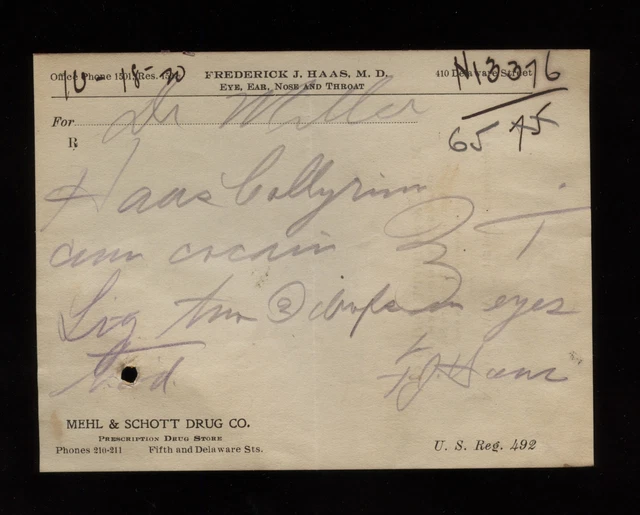 10-18-20
N13376
Office Phone 1501, Res.
FREDERICK J. HAAS, M. D.
410 Delaware Street
EYE, EAR, NOSE AND THROAT
65 45
For Dr Miller
R
Haas Collyrium
cum cocain ℥ T
Sig two ② drops in eyes
t.i.d
F J. Haas
MEHL & SCHOTT DRUG CO.
PRESCRIPTION DRUG STORE
Phones 210-211 Fifth and Delaware Sts.
U. S. Reg. 492